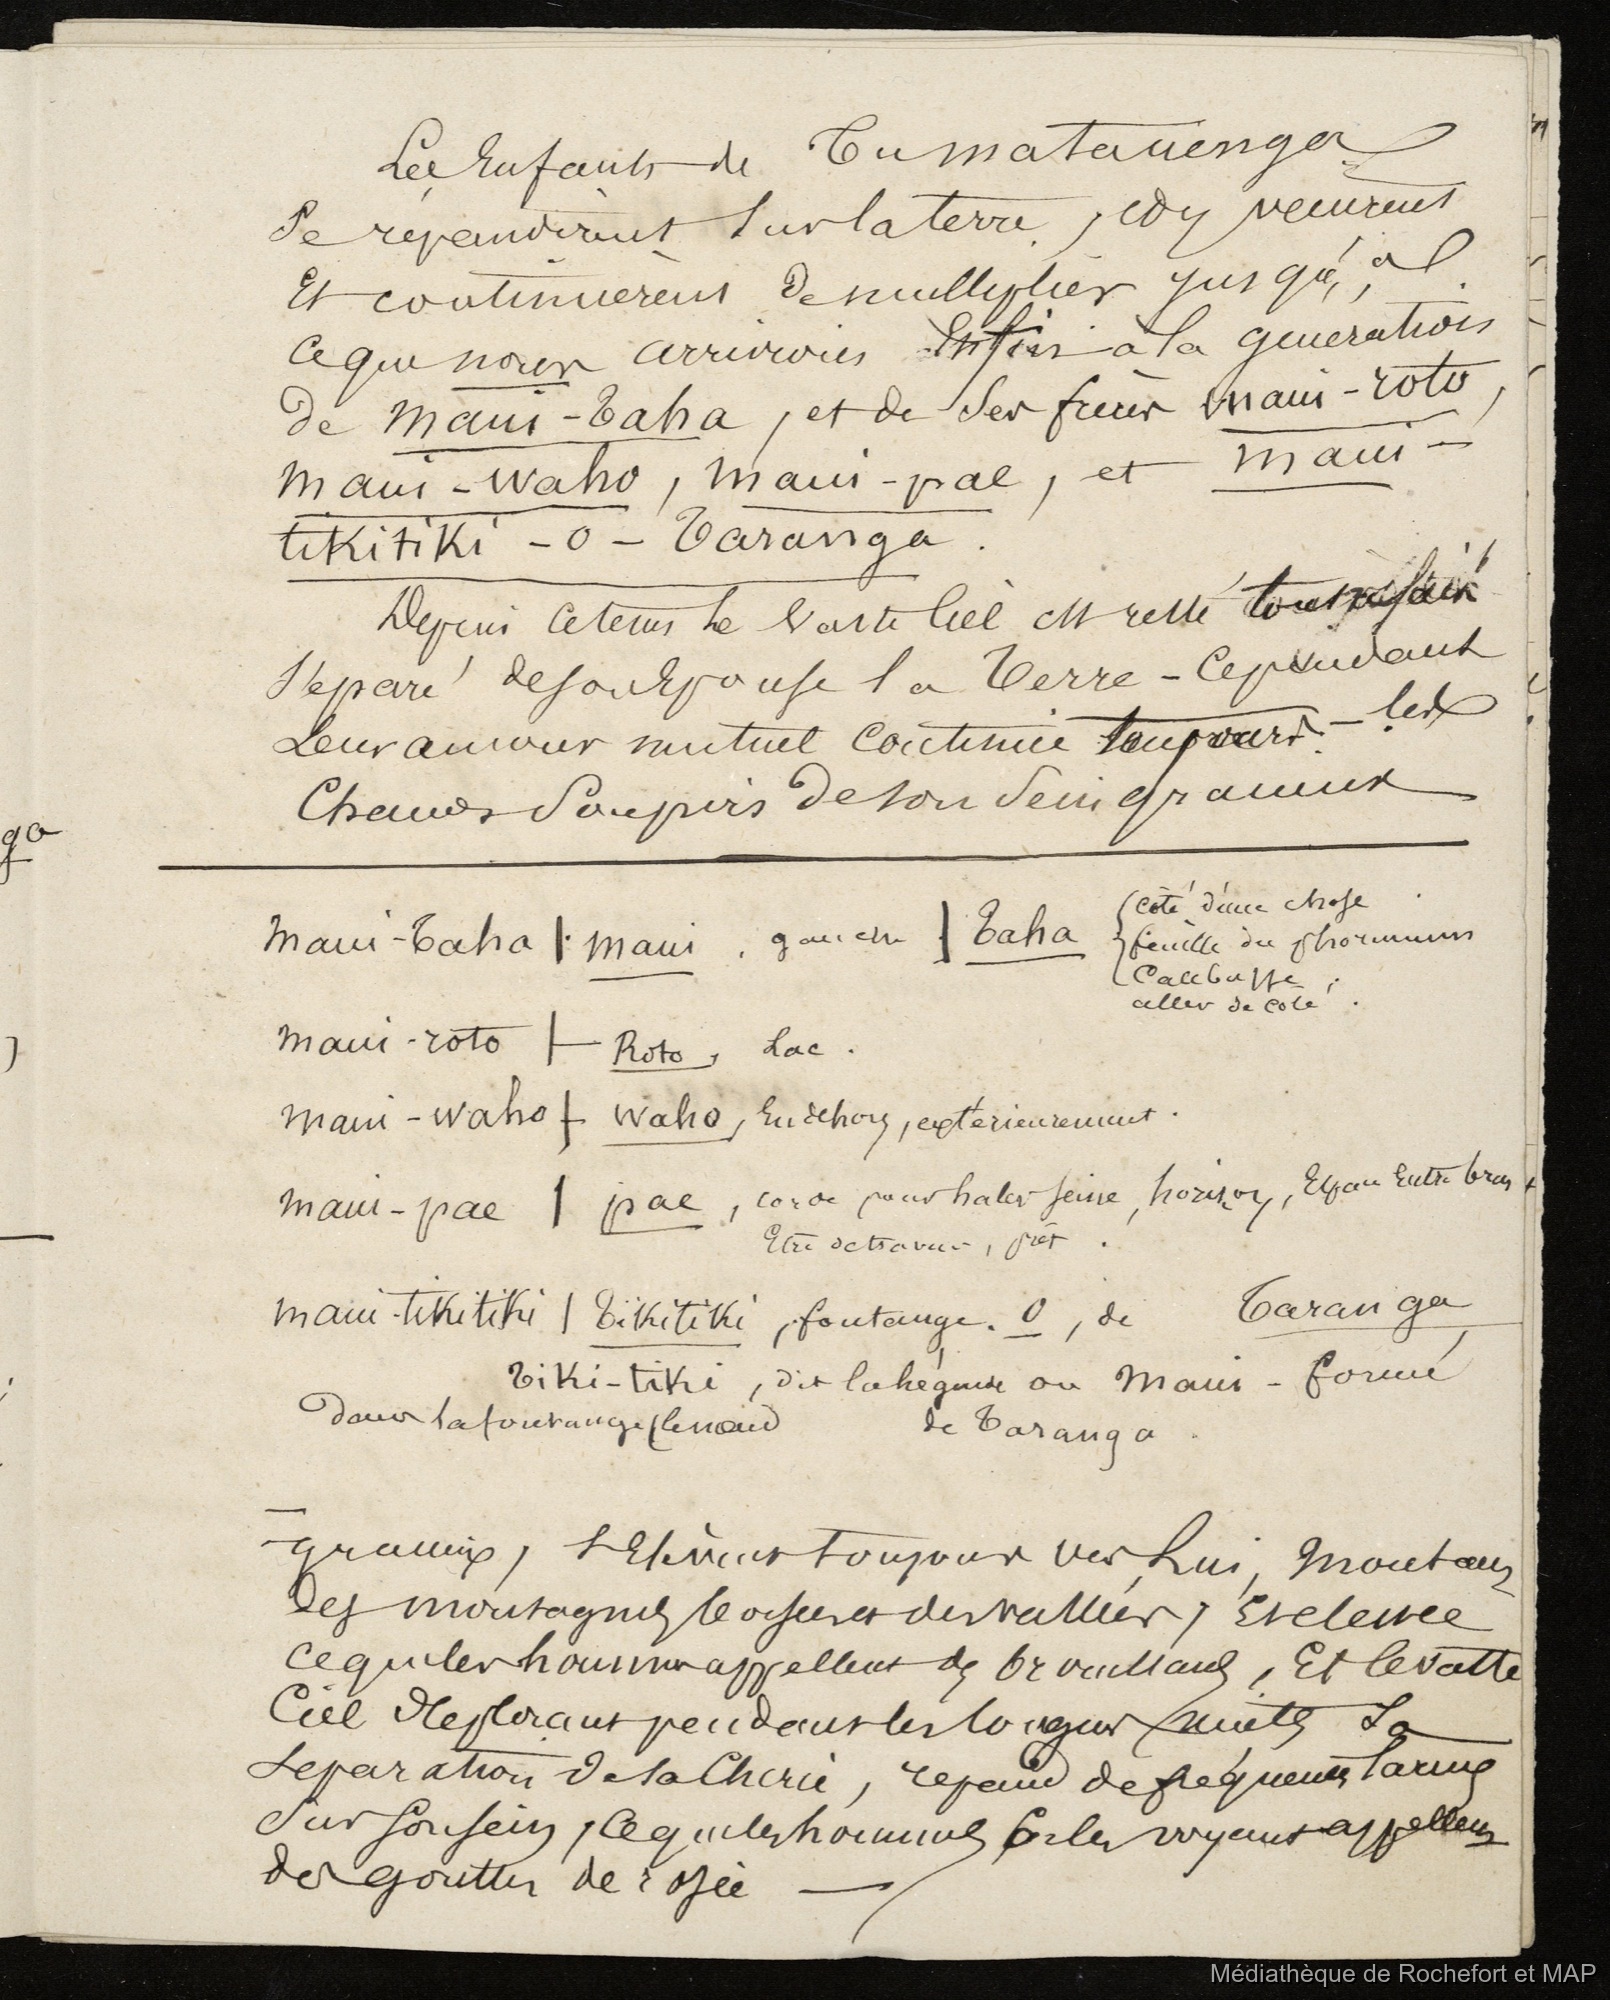 Les Enfants de Tumatauenga
se répandirent sur la terre, et y vecurent
Et continuèrent de multiplier jusqu'à
ce que nous arrivions Enfin à la generation
de maui-Taha, et de ses frères maui-roto,
maui-waho, maui-pae, et maui-
tikitiki-o-Taranga.
Depuis ce tems le Vaste Ciel est resté
séparé de son Epouse la Terre - Cependant
Leur amour mutuel Continue toujours - les
Chauds Soupirs de son Sein gracieux
Maui-Taha | maui, gauche | Taha
côté d'une chose
feuille du phormium
Callebasse,
aller de coté.
maui-roto | Roto, Lac.
maui-waho | waho, En dehors, extérieurement.
maui-pae | pae, corde pour haler seine, horizon, Espace Entre bras
Etre de travers, prêt.
maui-tikitiki | Tikitiki, fontange. O, de Taranga
Tiki-tiki, dit la légende ou Maui-formé
Dans la fontange (le noeud de Taranga.
- gracieux, s'Elèvent toujours vers Lui, Montant
des montagnes boisées et des vallées, Et c'est ce
ce que les hommes appellent des brouillards, Et le vaste
Ciel deplorant pendant les longues nuits Sa
separation de sa Cherie, repand de fréquentes larmes
Sur son sein, ce que les hommes En les voyant appellent
des gouttes de rosée
ga